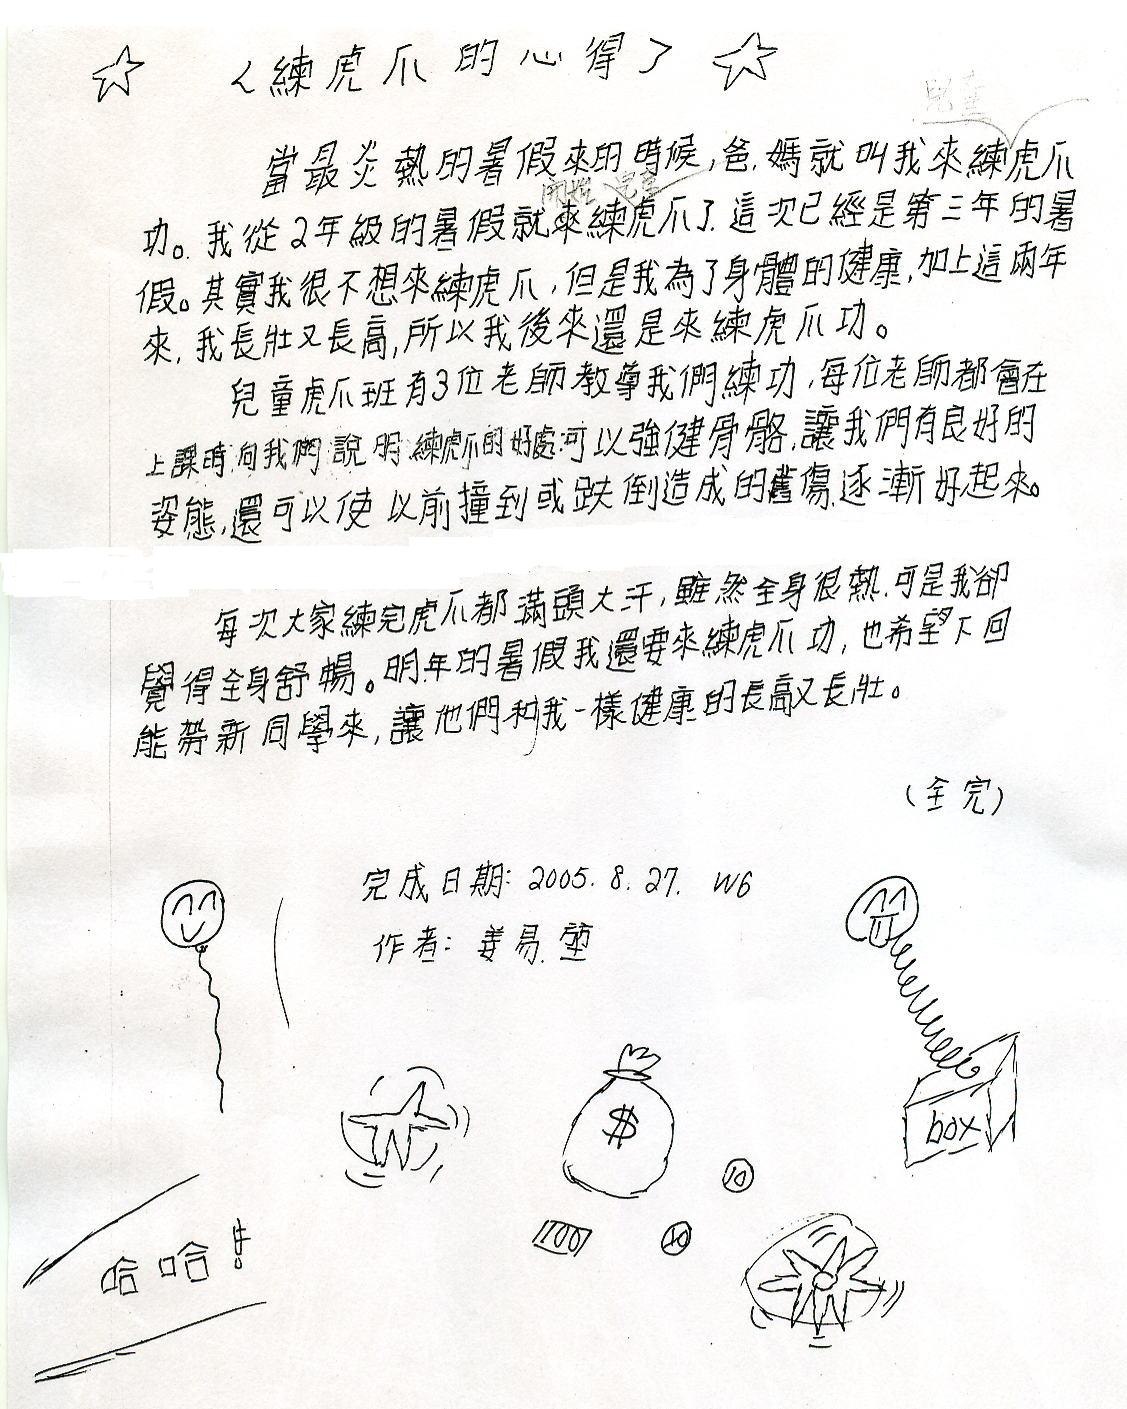 〈練虎爪的心得〉
兒童
當最炎熱的暑假來的時候,爸.媽就叫我來練虎爪
開始 兒童
功。我從2年級的暑假就來練虎爪了.這次已經是第三年的暑
假。其實我很不想來練虎爪,但是我為了身體的健康,加上這兩年
來,我長壯又長高,所以我後來還是來練虎爪功。
兒童虎爪班有3位老師教導我們練功,每位老師都會在
上課時向我們說明練虎爪的好處:可以強健骨骼,讓我們有良好的
姿態,還可以使以前撞到或跌倒造成的舊傷,逐漸好起來。
每次大家練完虎爪都滿頭大汗,雖然全身很熱,可是我卻
覺得全身舒暢。明年的暑假我還要來練虎爪功,也希望下回
能帶新同學來,讓他們和我一樣健康的長高又長壯。
(全完)
完成日期:2005.8.27. W6
作者:姜易.堃
$
box
10
100
10
哈哈!